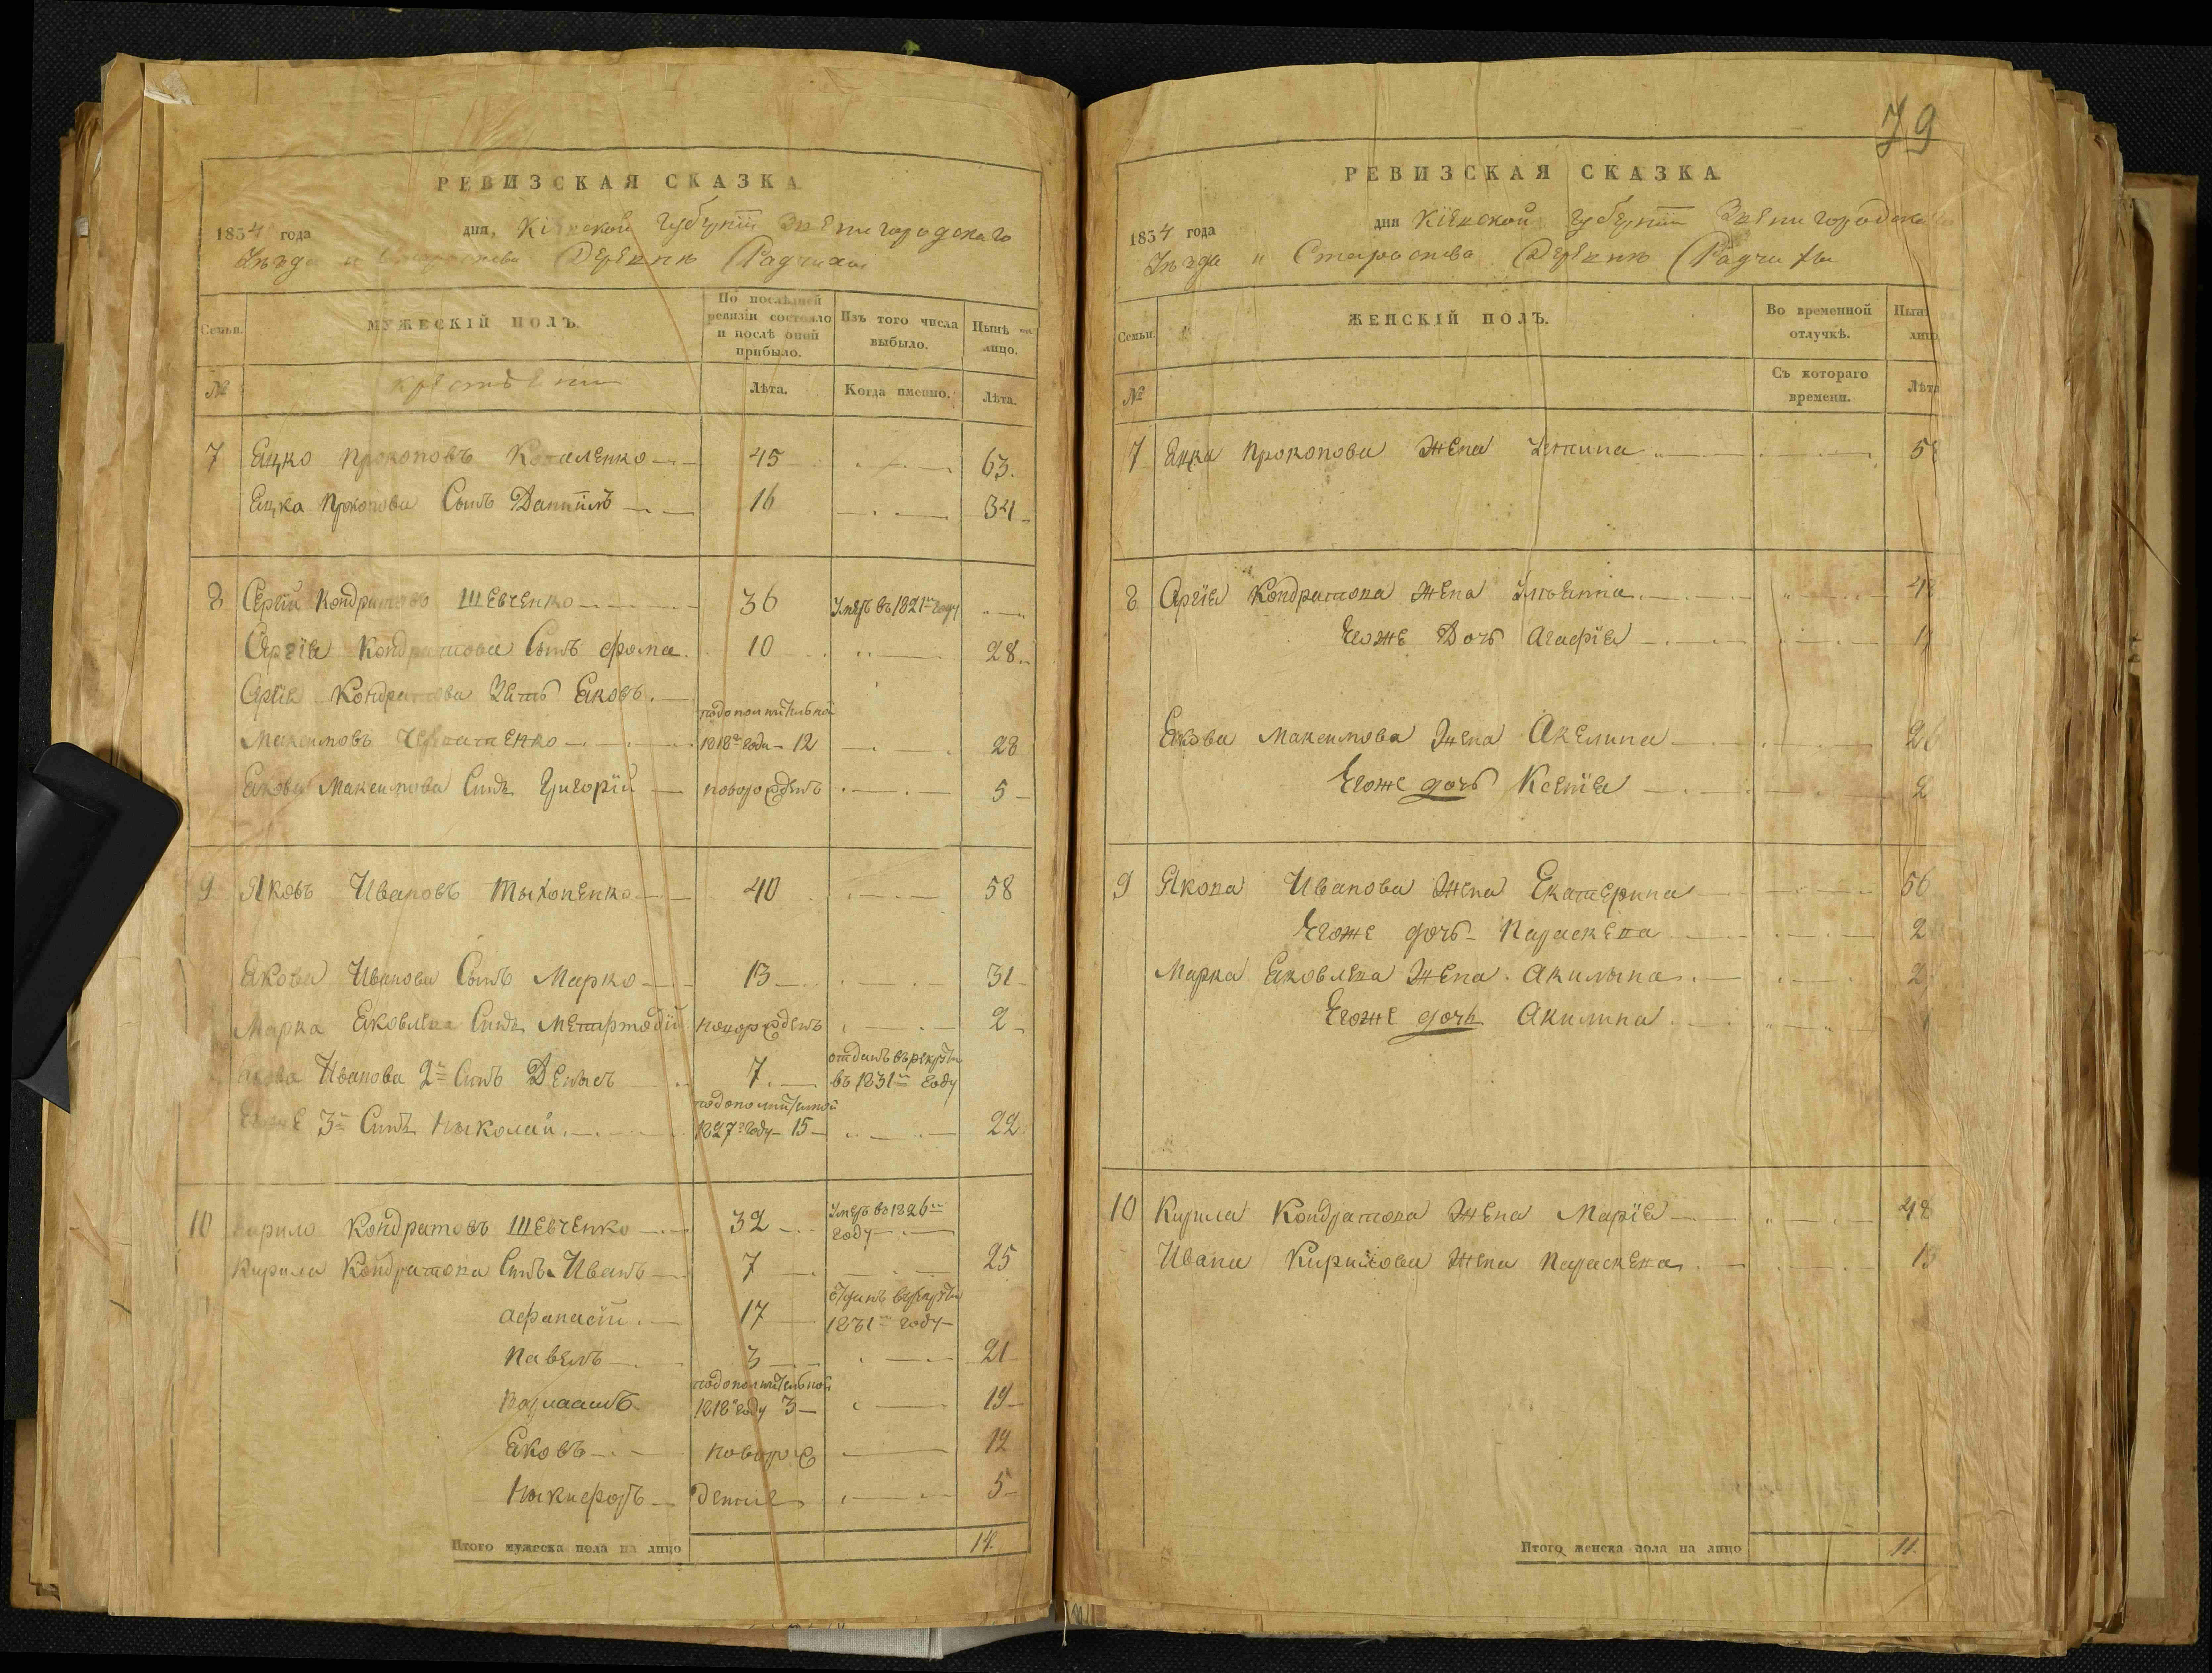 РЕВИЗСКАЯ СКАЗКА
1834 года дня, Кіевской Губерніи Звенигородскаго
Уѣзда и Староства Деревни
Семьи.
МУЖЕСКІЙ ПОЛЪ.
По послѣдней ревизіи состояло и послѣ оной прибыло.
Изъ того числа выбыло.
Нынѣ на лицо.
№
крестьяни
Лѣта.
Когда именно.
Лѣта.
7 Яцко Прокоповъ Коваленко 45 63.
Яцка Прокопова Сынъ Даніилъ 16 34
8 Сергій Кондратовъ Шевченко 36 Умеръ въ 1821м году
Сергія Кондратова Сынъ Фома 10 28
Сергія Кондратова Зять Яковъ
Максимовъ подополнительной 1818го года 12 28
Якова Максимова Синъ Григорій новорожденъ 5
9 Яковъ Ивановъ Тыхоненко 40 58
Якова Иванова Сынъ Марко 13 31
Марка Яковлева Синъ новорожденъ 2
Якова Иванова 2й Синъ Денысъ 7 отданъ въ рекруты въ 1831м году
Егоже 3й Синъ Ныколай подополнительной 1827го году 15 22
10 Кирило Кондратовъ Шевченко 32 Умеръ въ 1826м году
Кирила Кондратова Синъ Иванъ 7 25
Афанасій 17 отданъ в рекруты 1831м году
Павелъ 3 21
подополнительной 1818го году 3 19
Яковъ новорож 12
Ныкифоръ денніе 5
Итого мужеска пола на лицо 14.
79
РЕВИЗСКАЯ СКАЗКА
1834 года дня Кіевской Губерніи Звенигородскаго
Уѣзда и Староства Деревни
Семьи.
ЖЕНСКІЙ ПОЛЪ.
Во временной отлучкѣ.
Нынѣ лицо
№
Съ котораго времени.
Лѣта
7 Яцка Прокопова Жена
8 Сергія Кондратова Жена Ульянна 48
Егоже Дочь Агафія
Якова Максимова Жена Акелина
Егоже дочь Ксенія 2
9 Якова Иванова Жена Екатерина 56
Егоже дочь Параскева
Марка Яковлева Жена Акилына
Егоже дочь Акилина
10 Кирила Кондратова Жена Марія 48
Ивана Кирилова Жена Параскева
Итого женска пола на лицо 11.